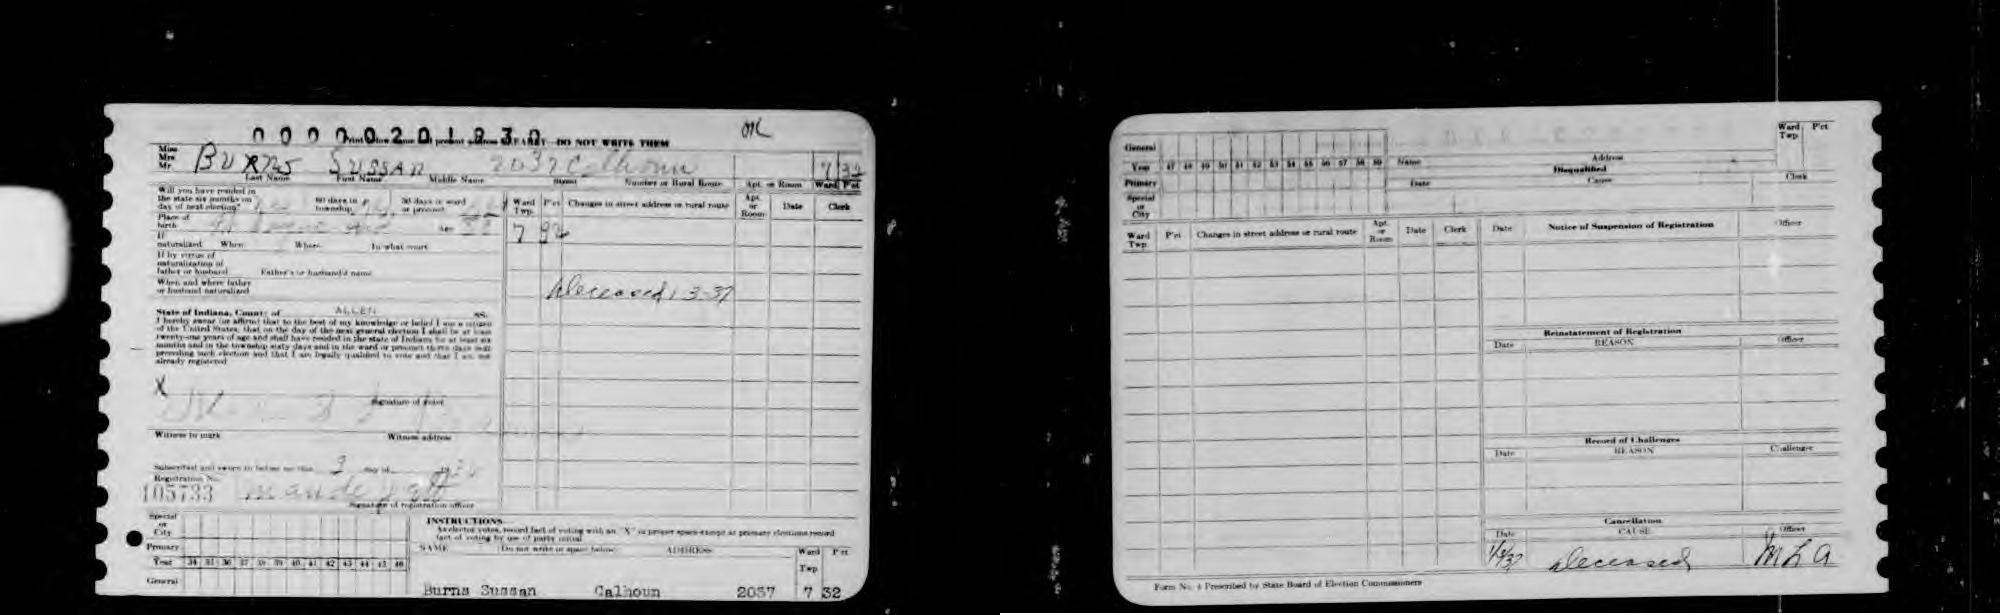 0 0 0 0 0 2 0 1 8 3 0
OK
DO NOT WRITE THEM
Miss
Mrs
Mr
BURNS SUSSAN 2037 Calhoun 7 32
Last Name First Name Middle Name Street Number or Rural Route Apt. or Room Ward P'ct
Will you have resided in
the state six months on
day of next election?
60 days in
township
30 days in ward
or precinct
Place of
birth
Age
If
naturalized When Where In what court
If by virtue of
naturalization of
father or husband Father's or husband's name
When and where father
or husband naturalized
State of Indiana, County of ALLEN ss.
I hereby swear (or affirm) that to the best of my knowledge or belief I am a citizen
of the United States; that on the day of the next general election I shall be at least
twenty-one years of age and shall have resided in the state of Indiana for at least six
months and in the township sixty days and in the ward or precinct thirty days next
preceding such election and that I am legally qualified to vote and that I am not
already registered
X
Signature of voter
Witness to mark Witness address
Subscribed and sworn to before me this 3 day of
Registration No.
105733
Signature of registration officer
Ward Twp. P'ct Changes in street address or rural route Apt. or Room Date Clerk
7 32
Deceased 1-3-37
Special
or
City
Primary
Year 34 35 36 37 38 39 40 41 42 43 44 45 46
General
INSTRUCTIONS
As elector votes, record fact of voting with an "X" in proper space except at primary elections record
fact of voting by use of party initial
NAME (Do not write in space below) ADDRESS Ward Twp. P'ct
Burns Sussan Calhoun 2037 7 32
General
Year 47 48 49 50 51 52 53 54 55 56 57 58 59
Primary
Special
or
City
Name Address Ward Twp. P'ct
Disqualified
Date Cause Clerk
Ward Twp. P'ct Changes in street address or rural route Apt. or Room Date Clerk
Date Notice of Suspension of Registration Officer
Reinstatement of Registration
Date REASON Officer
Record of Challenges
Date REASON Challenger
Cancellation
Date CAUSE Officer
1/3/37 Deceased M L A
Form No. 4 Prescribed by State Board of Election Commissioners